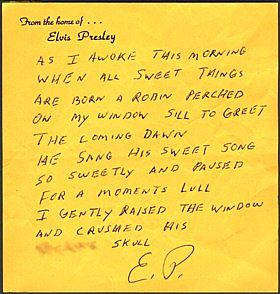 From the home of . . .
Elvis Presley
AS I AWOKE THIS MORNING
WHEN ALL SWEET THINGS
ARE BORN A ROBIN PERCHED
ON MY WINDOW SILL TO GREET
THE COMING DAWN
HE SANG HIS SWEET SONG
SO SWEETLY AND PAUSED
FOR A MOMENTS LULL
I GENTLY RAISED THE WINDOW
AND CRUSHED HIS
SKULL
E.P.